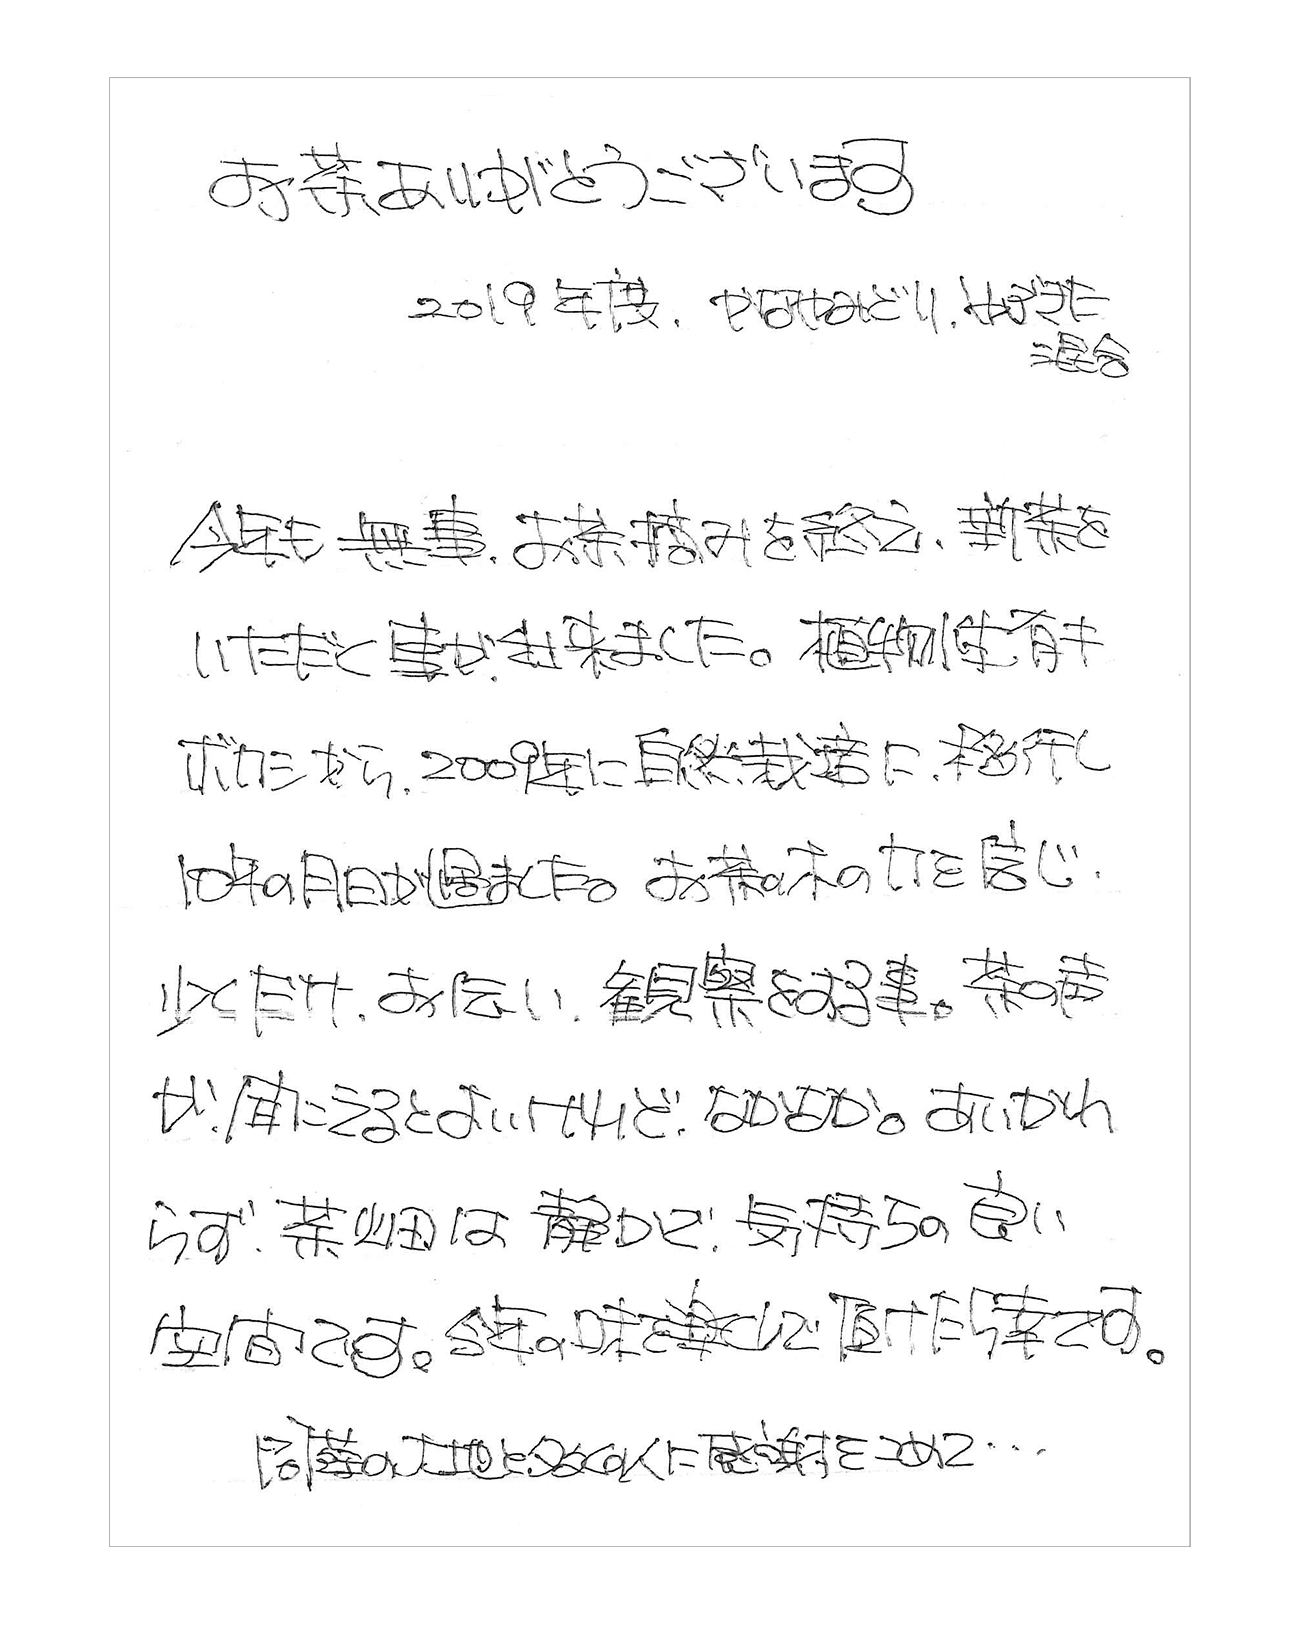 お茶ありがとうございます
2019年度、やまなみどり、やぶきた
混合
今年も無事、お茶摘みを終え、新茶を
いただく事が、出来ました。植物性有キ
ボカシから、2009年に自然栽培に、移行し
10年の月日が過ました。お茶の木の力を信じ、
少しだけ、お伝い、観察をする事。茶の声
が、聞こえるとよいけれど、なかなか。あいかわ
らず、茶畑は静かで、気持ちの良い
空間です。今年の味を楽しんで頂けたら幸です。
阿蘇の大地と多くの人に感謝をこめて…